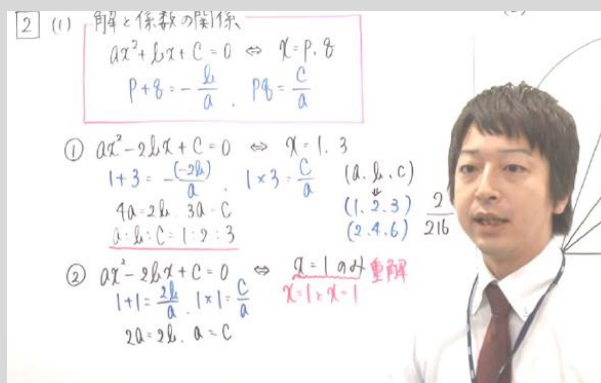 2 (1) 解と係数の関係
ax²+bx+c=0 ⇔ x=p.q
p+q=-b/a , pq=c/a
① ax²-2bx+c=0 ⇔ x=1.3
1+3=-(-2b)/a , 1×3=c/a
4a=2b. 3a=c
a:b:c=1:2:3
(a.b.c)
(1.2.3)
(2.4.6)
2/216
② ax²-2bx+c=0 ⇔ x=1のみ 重解
1+1=2b/a , 1×1=c/a
x=1とx=1
2a=2b. a=c